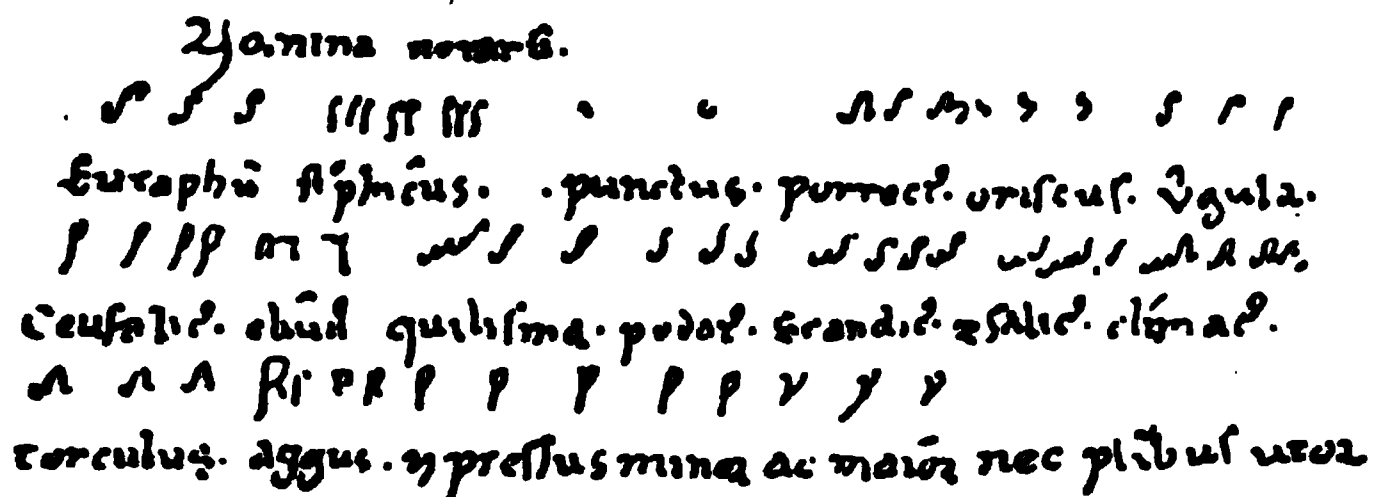 Noṁina notarū.
Eutaphū strphicus. .punctus. porrectꝰ. oriscus. v̂gula.
Ceufalicꝰ. quilisma. podatꝰ. scandicꝰ. salicꝰ. climacꝰ.
torculus. aggus. pressus minor ac maiór nec plib'us utor